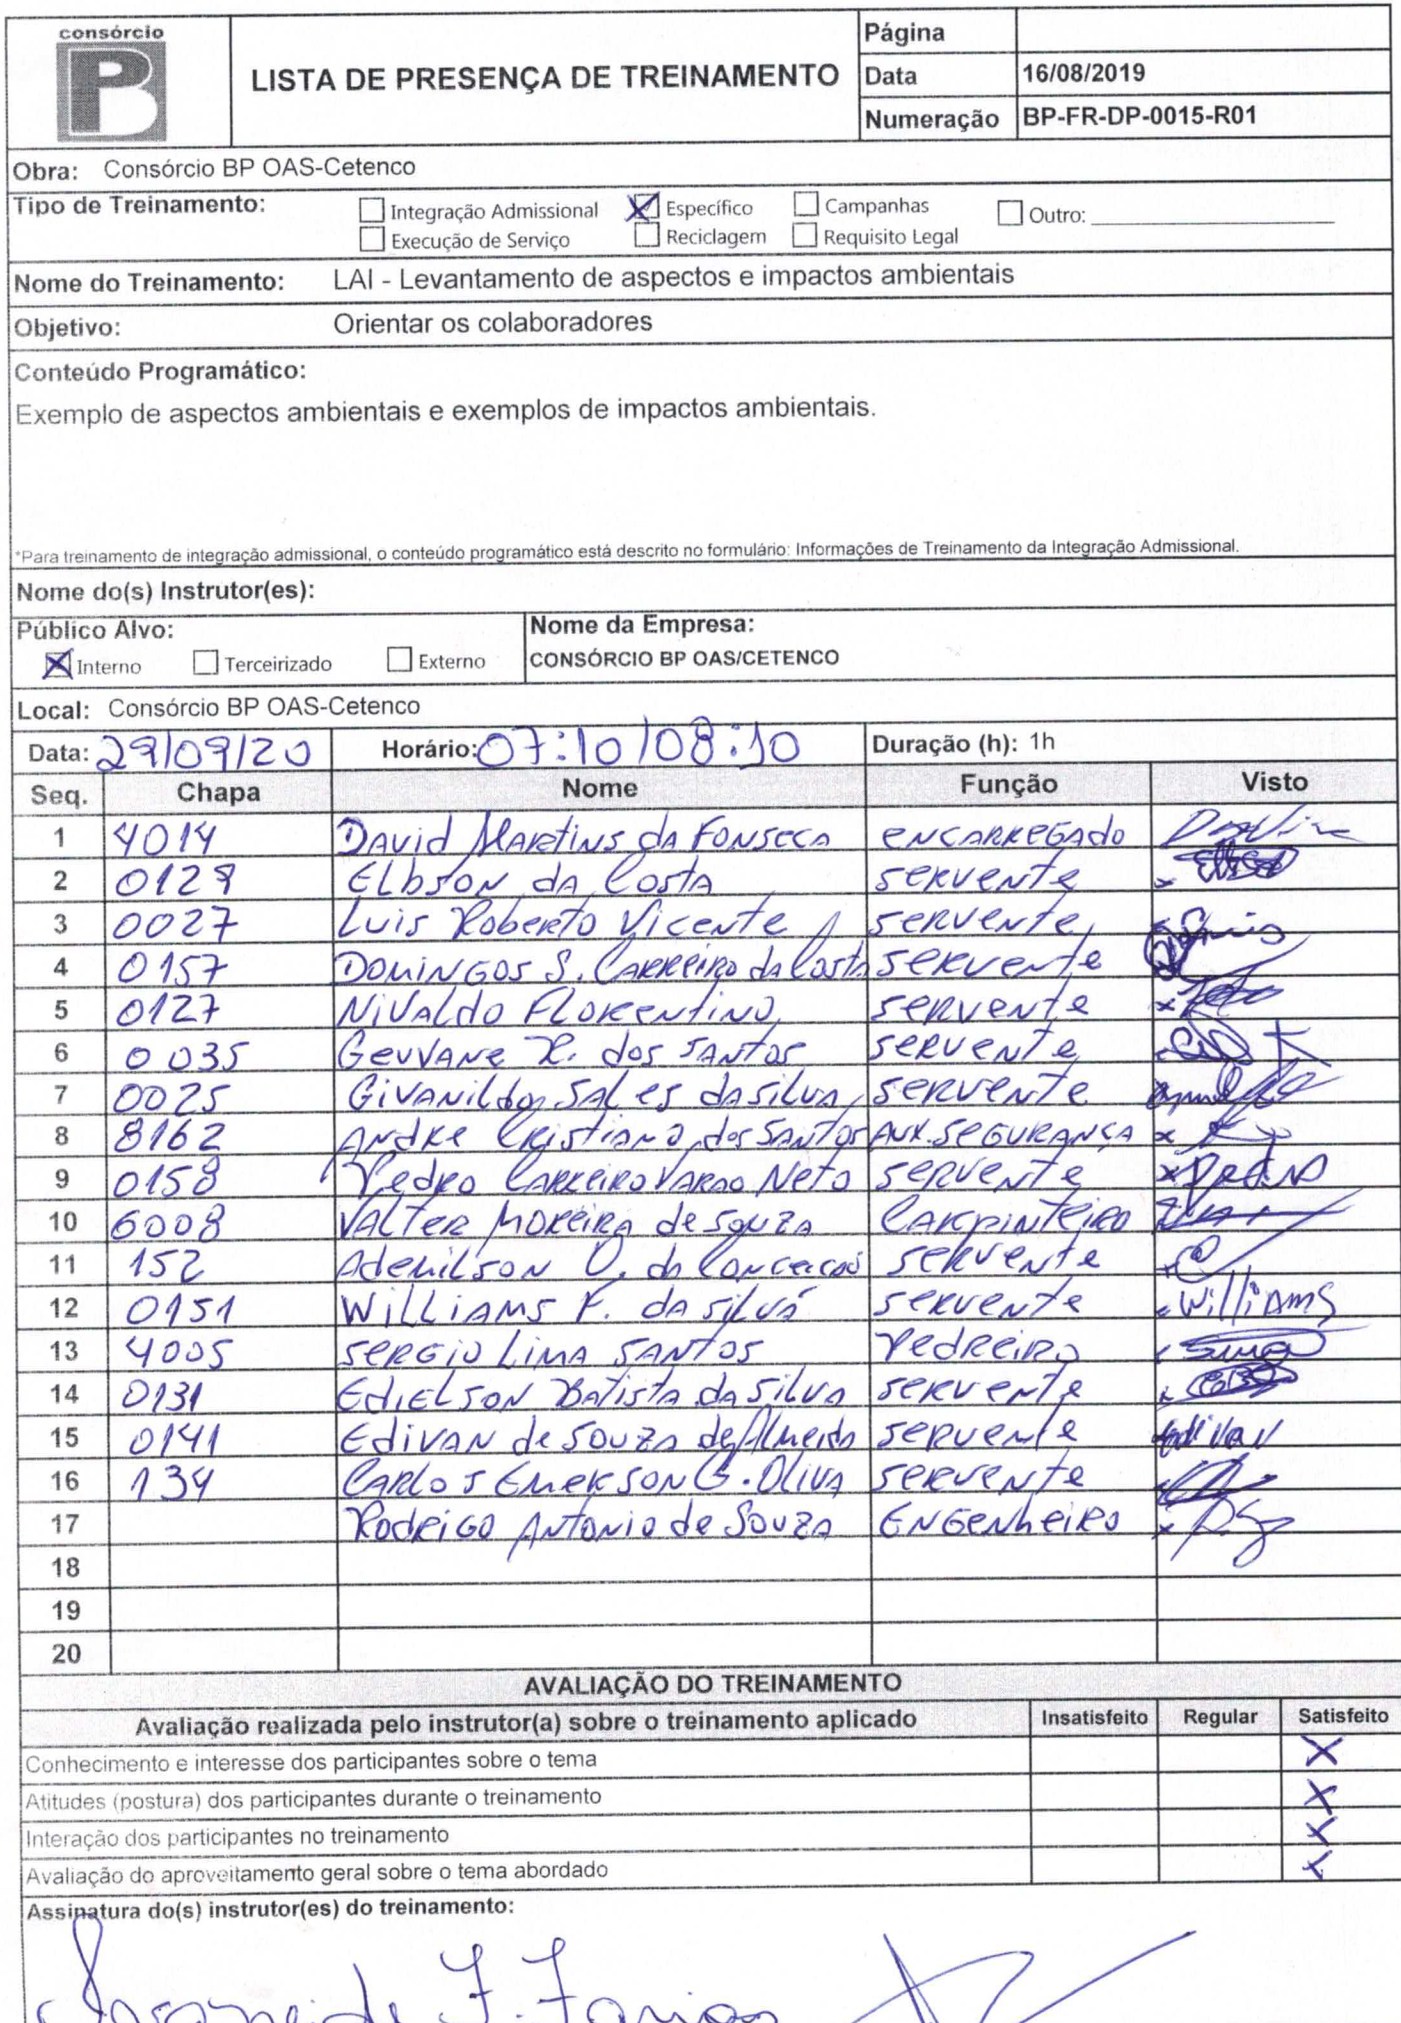 consórcio
PB
LISTA DE PRESENÇA DE TREINAMENTO
Página
Data 16/08/2019
Numeração BP-FR-DP-0015-R01
Obra: Consórcio BP OAS-Cetenco
Tipo de Treinamento: Integração Admissional Específico Campanhas Outro:
Execução de Serviço Reciclagem Requisito Legal
Nome do Treinamento: LAI - Levantamento de aspectos e impactos ambientais
Objetivo: Orientar os colaboradores
Conteúdo Programático:
Exemplo de aspectos ambientais e exemplos de impactos ambientais.
*Para treinamento de integração admissional, o conteúdo programático está descrito no formulário: Informações de Treinamento da Integração Admissional.
Nome do(s) Instrutor(es):
Público Alvo: Nome da Empresa:
Interno Terceirizado Externo CONSÓRCIO BP OAS/CETENCO
Local: Consórcio BP OAS-Cetenco
Data: 29/09/20 Horário: 07:10/08:10 Duração (h): 1h
Seq. Chapa Nome Função Visto
1 4014 David Martins da Fonseca encarregado
2 0129 Elbson da Costa servente
3 0027 Luis Roberto Vicente servente
4 0157 Domingos S. Carreiro da Costa servente
5 0127 Nivaldo Florentino servente
6 0035 Geuvane R. dos Santos servente
7 0025 Givanildo Sales da Silva servente
8 8162 Andre Cristiano dos Santos Aux. Segurança
9 0158 Pedro Carreiro Varao Neto servente x Pedro
10 6008 Valter Moreira de Souza Carpinteiro
11 152 Ademilson O. da Conceicao servente
12 0151 Williams F. da Silva servente Williams
13 4005 Sergio Lima Santos Pedreiro
14 0131 Edielson Batista da Silva servente
15 0141 Edivan de Souza de Almeida servente Edivan
16 134 Carlos Emerson G. Oliva servente
17 Rodrigo Antonio de Souza Engenheiro
18
19
20
AVALIAÇÃO DO TREINAMENTO
Avaliação realizada pelo instrutor(a) sobre o treinamento aplicado Insatisfeito Regular Satisfeito
Conhecimento e interesse dos participantes sobre o tema X
Atitudes (postura) dos participantes durante o treinamento X
Interação dos participantes no treinamento X
Avaliação do aproveitamento geral sobre o tema abordado X
Assinatura do(s) instrutor(es) do treinamento: